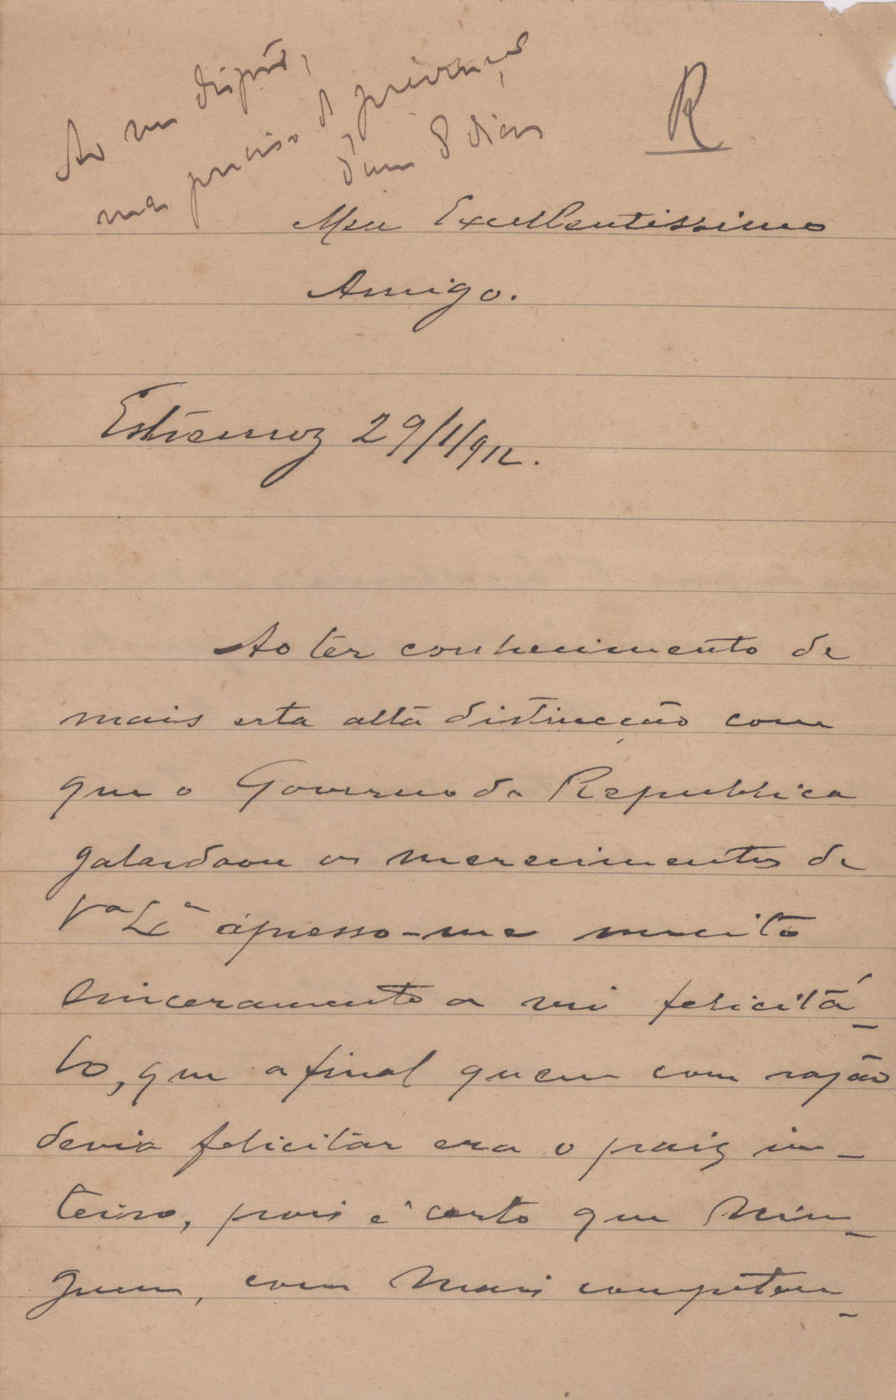 Ao seu dispôr,
mas preciso de prevenção
d'uns 8 dias
R
Meu Excellentissimo
Amigo.
Estremoz 29/1/912.
Ao ter conhecimento de
mais esta alta distincção com
que o Governo da Republica
galardoou os merecimentos de
Vª Exª apresso-me muito
sinceramente a vir felicitá-
lo, que a final quem com rasão
devia felicitar era o paiz in-
teiro, pois é certo que nin-
guem, com mais competen-